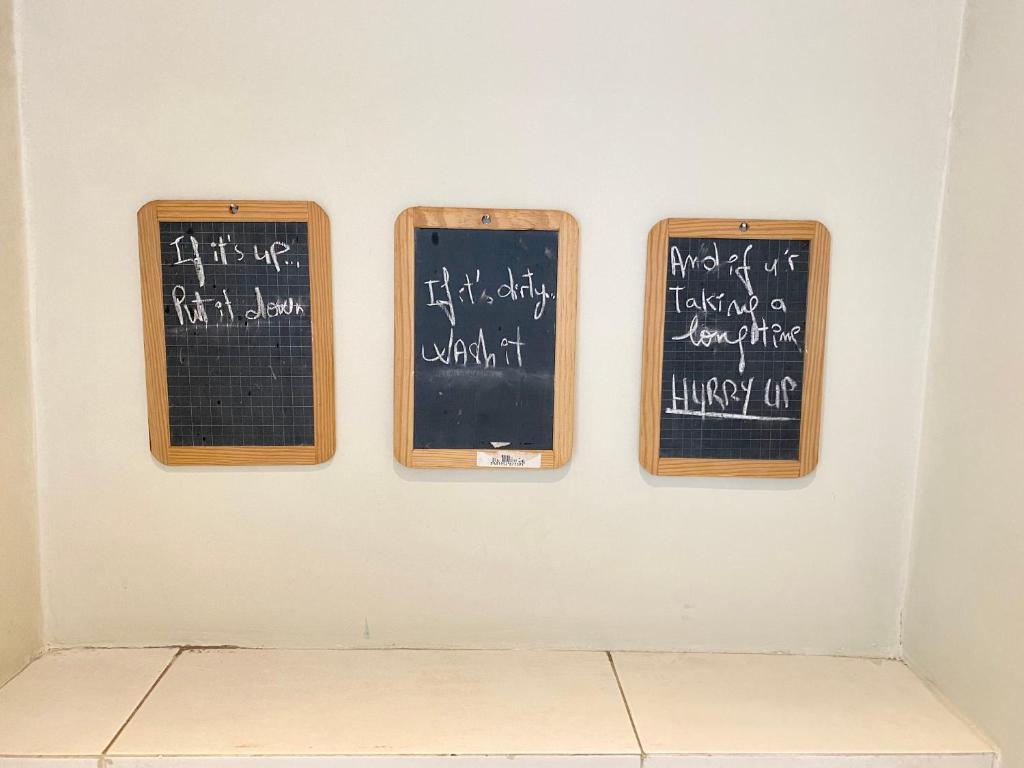 If it's up...
Put it down
If it's dirty..
WASh it
And if u'r
Taking a
long time
HURRY UP